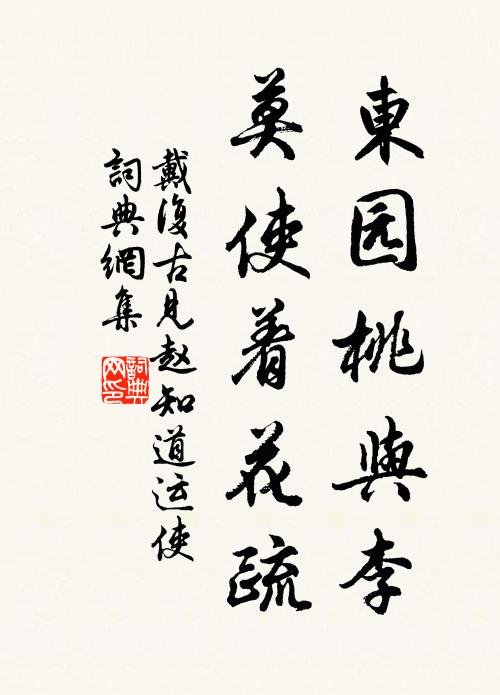 東园桃與李
莫使着花疏
戴復古見赵知道运使
詞典網集
詞典
网印